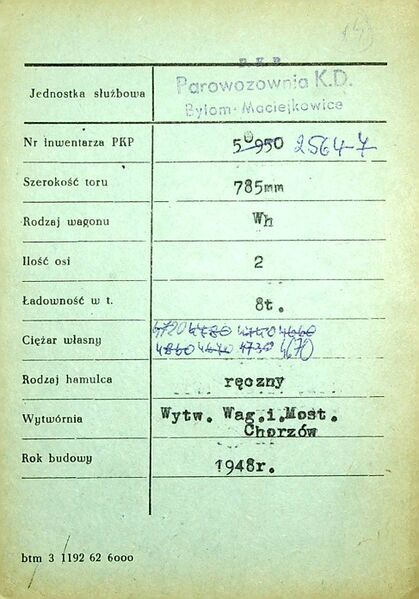 P.K.P.
Jednostka służbowa Parowozownia K.D.
Bytom-Maciejkowice
Nr inwentarza PKP 50950 2564-7
Szerokość toru 785mm
Rodzaj wagonu Wh
Ilość osi 2
Ładowność w t. 8t.
4720 4780 4740 4660
Ciężar własny 4860 4640 4730 4670
Rodzaj hamulca ręczny
Wytwórnia Wytw. Wag.i.Most.
Chorzów
Rok budowy 1948r.
btm 3 1192 62 6000